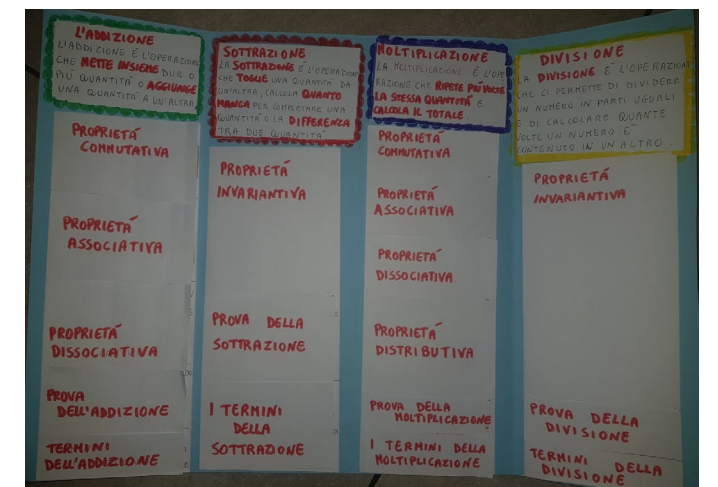 L'ADDIZIONE
L'ADDIZIONE É L'OPERAZIONE
CHE METTE INSIEME DUE O
PIÚ QUANTITÁ O AGGIUNGE
UNA QUANTITÁ A UN'ALTRA.
PROPRIETÁ
COMMUTATIVA
PROPRIETÁ
ASSOCIATIVA
PROPRIETÁ
DISSOCIATIVA
PROVA
DELL'ADDIZIONE
TERMINI
DELL'ADDIZIONE
SOTTRAZIONE
LA SOTTRAZIONE É L'OPERAZIONE
CHE TOGLIE UNA QUANTITÁ DA
UN'ALTRA, CALCOLA QUANTO
MANCA PER COMPLETARE UNA
QUANTITÁ O LA DIFFERENZA
TRA DUE QUANTITÁ
PROPRIETÁ
INVARIANTIVA
PROVA DELLA
SOTTRAZIONE
I TERMINI
DELLA
SOTTRAZIONE
MOLTIPLICAZIONE
LA MOLTIPLICAZIONE É L'OPE
RAZIONE CHE RIPETE PIÚ VOLTE
LA STESSA QUANTITÁ E
CALCOLA IL TOTALE.
PROPRIETÁ
COMMUTATIVA
PROPRIETÁ
ASSOCIATIVA
PROPRIETÁ
DISSOCIATIVA
PROPRIETÁ
DISTRIBUTIVA
PROVA DELLA
MOLTIPLICAZIONE
I TERMINI DELLA
MOLTIPLICAZIONE
DIVISIONE
LA DIVISIONE É L'OPERAZIONE
CHE CI PERMETTE DI DIVIDERE
UN NUMERO IN PARTI UGUALI
E DI CALCOLARE QUANTE
VOLTE UN NUMERO É
CONTENUTO IN UN ALTRO.
PROPRIETÁ
INVARIANTIVA
PROVA DELLA
DIVISIONE
TERMINI DELLA
DIVISIONE